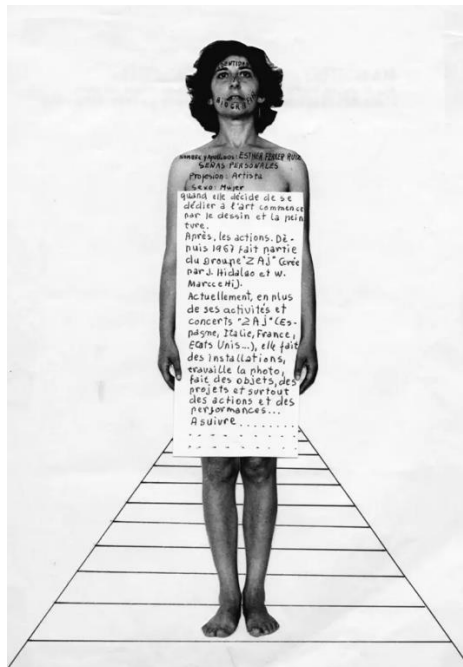 nombre y apellidos: ESTHER FERRER RUIZ
SEÑAS PERSONALES
Profesion: Artista
Sexo: Mujer
quand elle décide de se
dédier à l'art commence
par le dessin et la pein
ture.
Après, les actions. De-
puis 1967 fait partie
du Groupe "ZAJ" (crée
par J. Hidalgo et W.
Actuellement, en plus
de ses activités et
concerts "ZAJ" (Es-
pagne, Italie, France,
Etats Unis...), elle fait
des installations,
travaille la photo,
fait des objets, des
projets et surtout
des actions et des
performances...
A suivre........